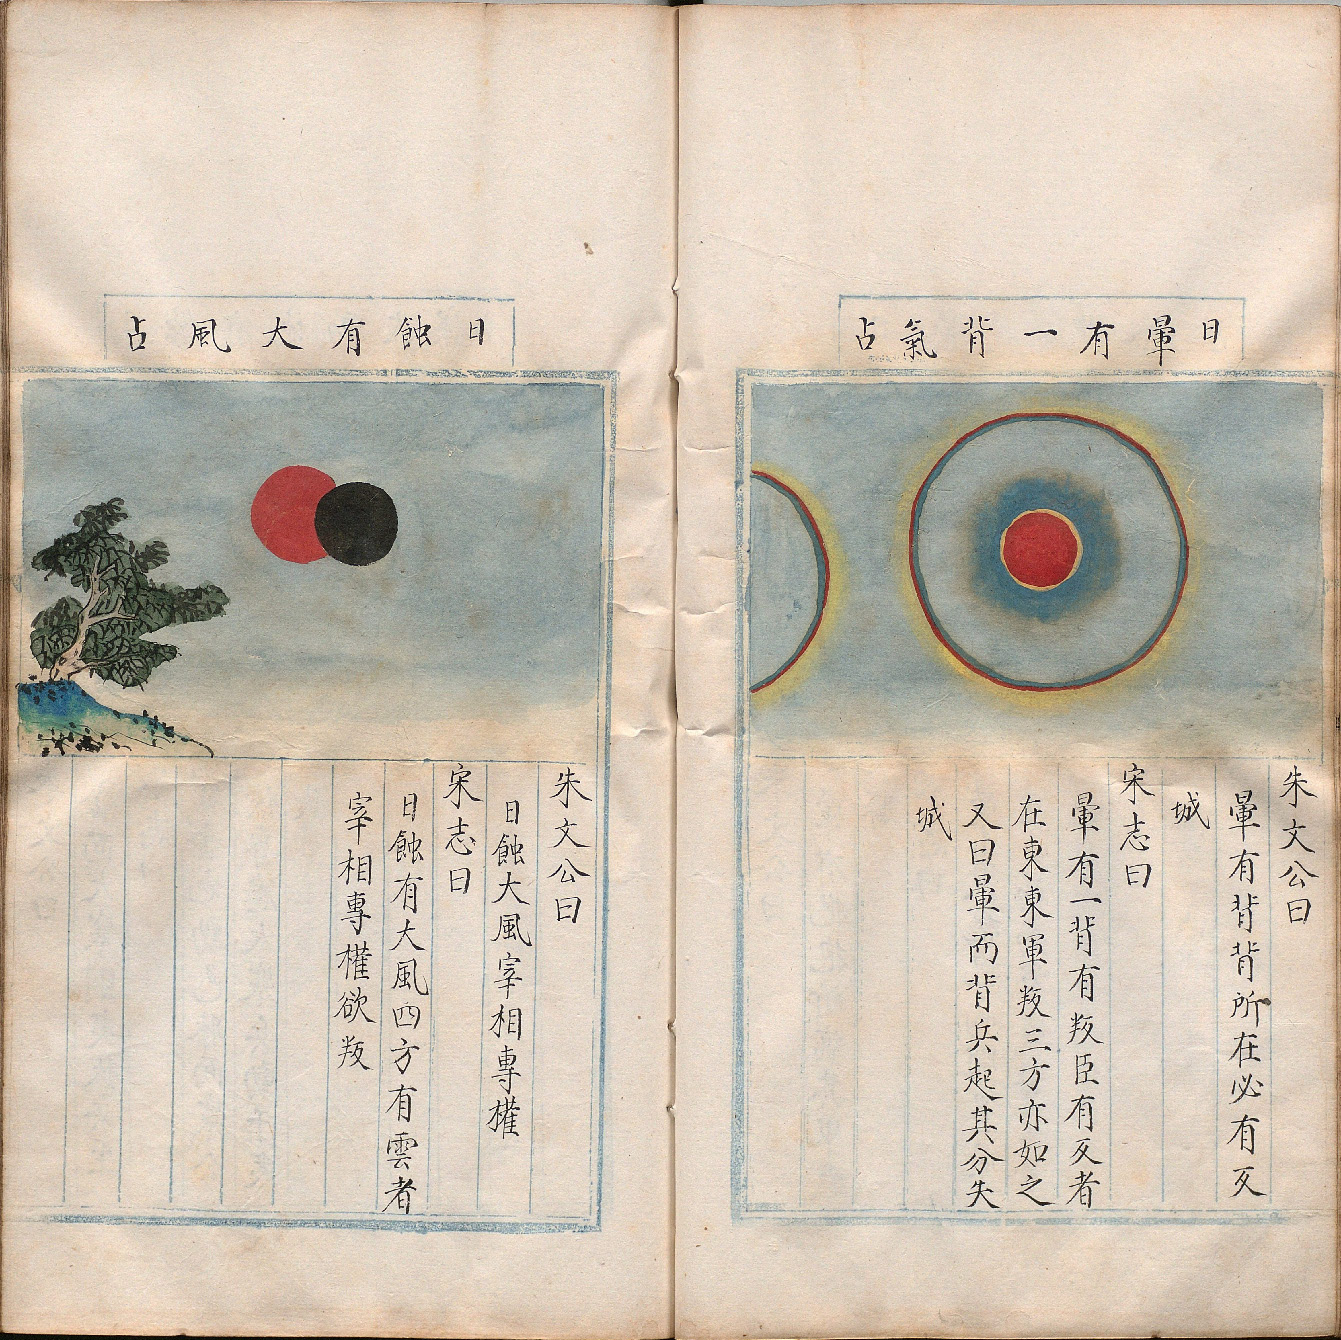 日暈有一背氣占
朱文公曰
暈有背背所在必有叐
城
宋志曰
暈有一背有叛臣有叐者
在東東軍叛三方亦如之
又曰暈而背兵起其分失
城
日蝕有大風占
朱文公曰
日蝕大風宰相專權
宋志曰
日蝕有大風四方有雲者
宰相專權欲叛